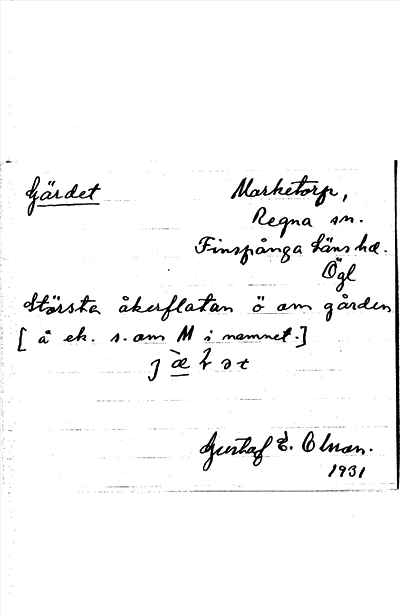 Gärdet
Marketorp,
Regna sn.
Finspånga läns hd.
Ögl
Största åkerflatan ö om gården
[ å ek. s. om M i namnet.]
Gustaf E. Olson.
1931